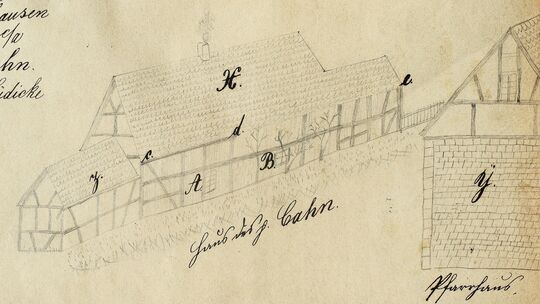 ausen
e/a
hn.
idicke
H.
e.
d.
c.
z.
A
B.
Y.
Haus des H. Cahn.
Pfarrhaus.